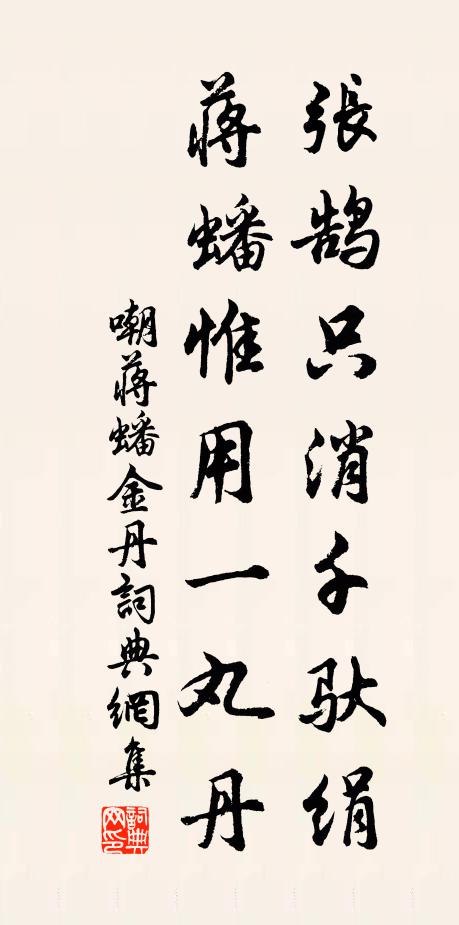 張鹄只消千驮絹
蔣蟠惟用一丸丹
嘲蔣蟠金丹詞典網集
詞典网印